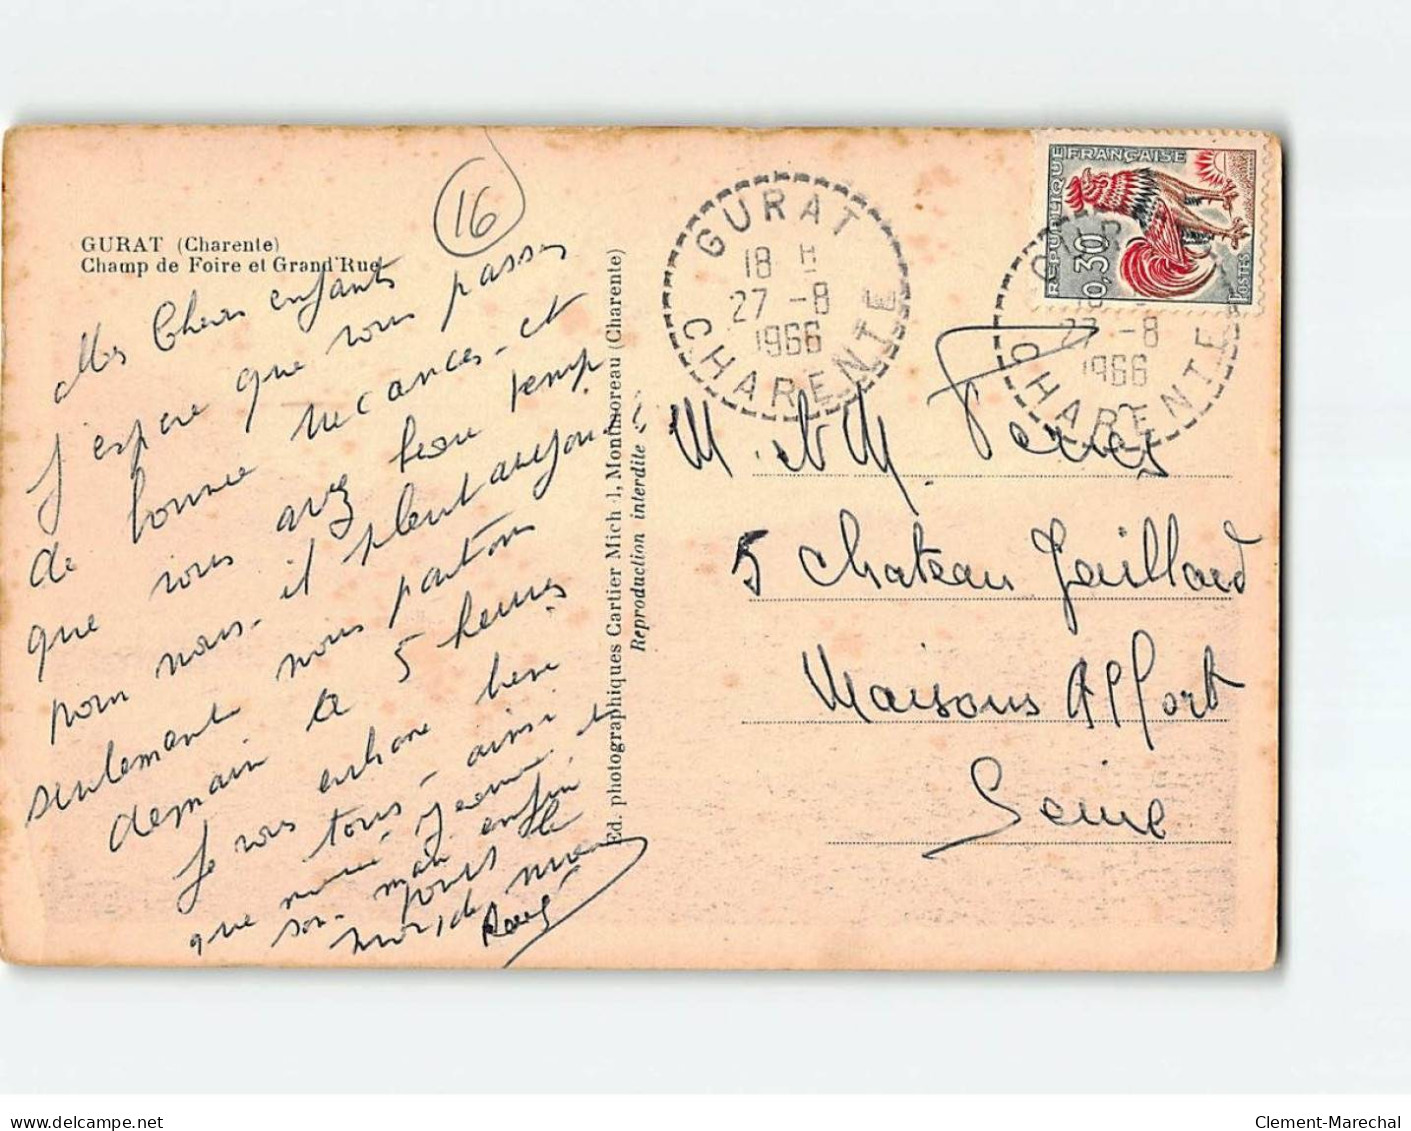 16
GURAT (Charente)
Champ de Foire et Grand'Rue
Mes Chers enfants
J'espere que vous passez
de bonne vacances - et
que vous avez beau temp
pour nous - il pleut aujour
seulement nous partons
demain a 5 heures
Je vous
tous - ainsi
que
son mari enfin
tous le
Ed. photographiques Cartier Mich l, Montmoreau (Charente)
Reproduction interdite
GURAT
18 H
27 -8
1966
CHARENTE
REPUBLIQUE FRANÇAISE
0,30
POSTES
27 -8
1966
CHARENTE
M. et M.
5 Chateau Gaillard
Maisons Alfort
Seine
Clement-Marechal